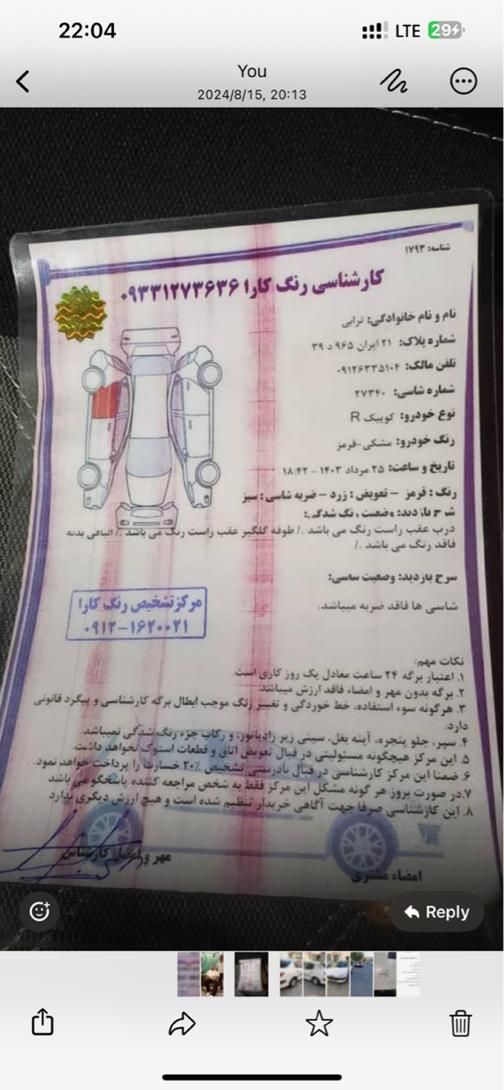 22:04
LTE 29
You
2024/8/15, 20:13
شناسه: ۱۷۹۳
کارشناسی رنگ کارا ۰۹۳۳۱۲۷۳۶۳۶
نام و نام خانوادگی: ترابی
شماره پلاک: ۲۱ ایران ۹۶۵ د ۳۹
تلفن مالک: ۰۹۱۲۶۳۳۵۱۰۴
شماره شاسی: ۲۷۳۴۰
نوع خودرو: کوییک R
رنگ خودرو: مشکی-قرمز
تاریخ و ساعت: ۲۵ مرداد ۱۴۰۳ - ۱۸:۴۲
رنگ : قرمز - تعویض : زرد - ضربه شاسی : سبز
شرح بازدید: وضعیت رنگ شدگی:
درب عقب راست رنگ می باشد ./ طوقه گلگیر عقب راست رنگ می باشد ./ الباقی بدنه
فاقد رنگ می باشد ./
شرح بازدید: وضعیت شاسی:
شاسی ها فاقد ضربه میباشد.
مرکز تشخیص رنگ کارا
۰۹۱۲-۱۶۲۰۰۲۱
نکات مهم:
۱. اعتبار برگه ۲۴ ساعت معادل یک روز کاری است.
۲. برگه بدون مهر و امضاء فاقد ارزش میباشد.
۳. هرگونه سوء استفاده، خط خوردگی و تغییر رنگ موجب ابطال برگه کارشناسی و پیگرد قانونی
دارد.
۴. سپر، جلو پنجره، آینه بغل، سینی زیر رادیاتور، و رکاب جزء رنگ شدگی نمیباشد.
۵. این مرکز هیچگونه مسئولیتی در قبال تعویض اتاق و قطعات استوک نخواهد داشت.
۶. ضمنا این مرکز کارشناسی در قبال نادرستی تشخیص ۲۰٪ خسارت را پرداخت خواهد نمود.
۷. در صورت بروز هر گونه مشکل این مرکز فقط به شخص مراجعه کننده پاسخگو می باشد
۸. این کارشناسی صرفا جهت آگاهی خریدار تنظیم شده است و هیچ ارزش دیگری ندارد
مهر و امضای کارشناس
امضاء مشتری
Reply